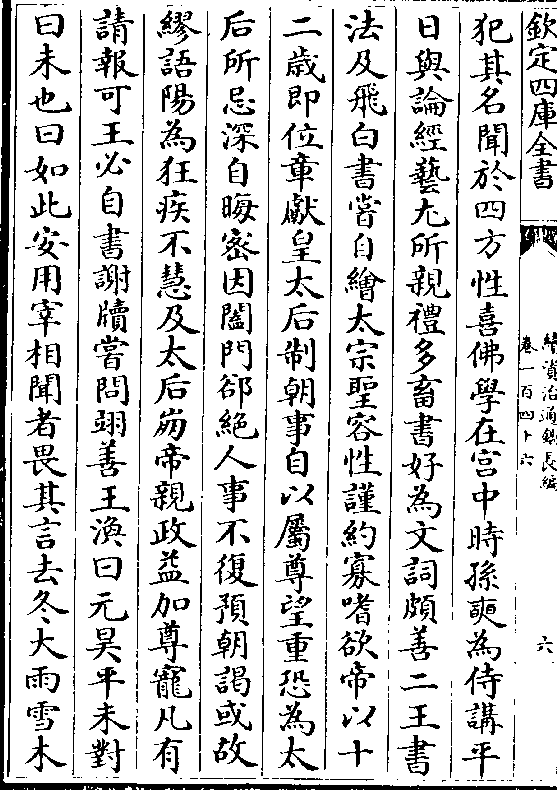 欽定四庫全書
續資治通鑑長編
卷一百四十六
六
犯其名聞於四方性喜佛學在宮中時孫奭為侍講平
日與論經藝尤所親禮多畜書好為文詞頗善二王書
法及飛白書嘗自繪太宗聖容性謹約寡嗜欲帝以十
二歲即位章獻皇太后制朝事自以屬尊望重恐為太
后所忌深自晦密因闔門郤絶人事不復預朝謁或故
繆語陽為狂疾不慧及太后崩帝親政益加尊寵凡有
請報可王必自書謝牘嘗問翊善王渙曰元昊平未對
曰未也曰如此安用宰相聞者畏其言去冬大雨雪木